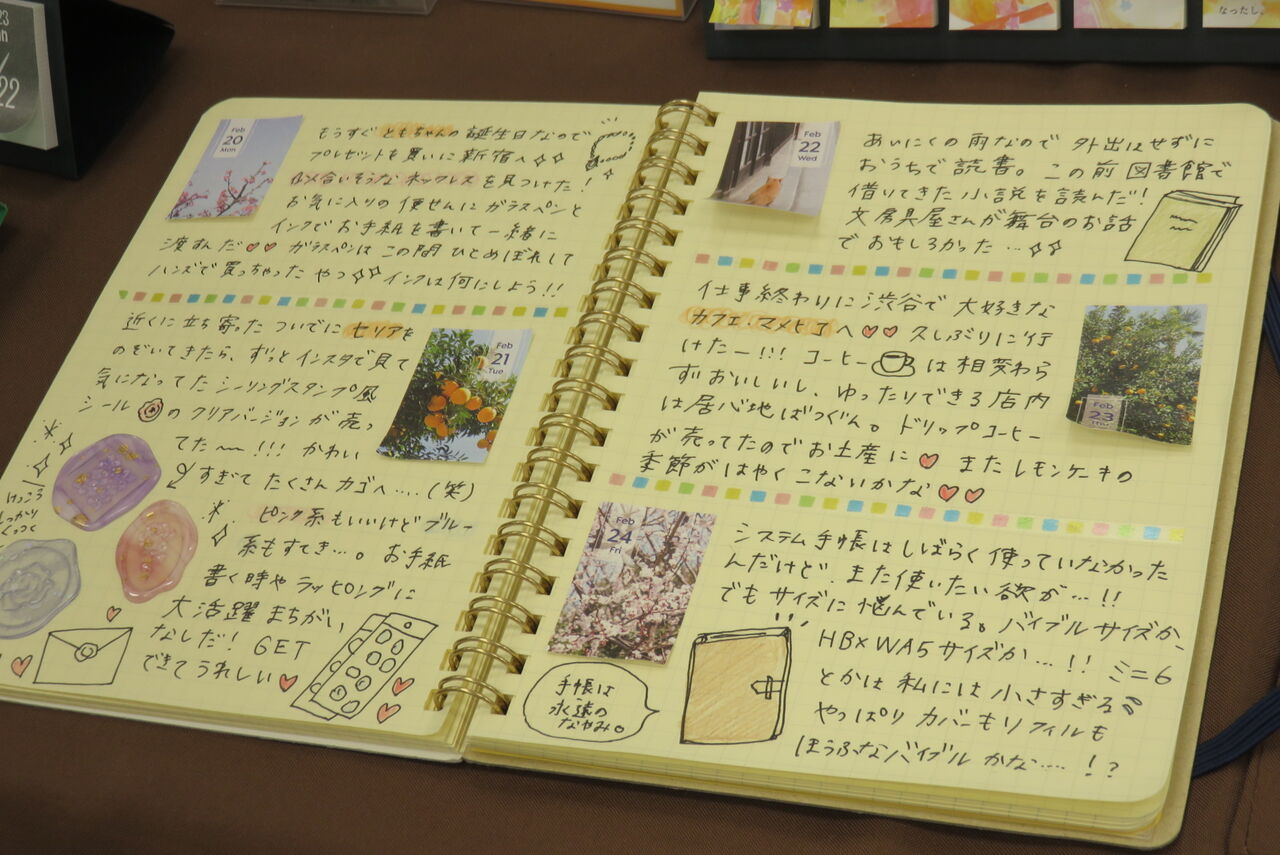 22
なっだし。
Feb
20
Mon
もうすぐ ともちゃんの 誕生日なので
プレゼントを 買いに 新宿へ
似合いそうな ネックレス を 見つけた!
お気に入りの 便せんに ガラスペンと
インクで お手紙 を 書いて 一緒に
渡すんだ♡♡ ガラスペンは この間 ひとめぼれして
ハンズで 買っちゃった やつ インクは 何にしよう!!
近くに 立ち寄った ついでに セリアを
のぞいてきたら、ずっと インスタで 見て
気になってた シーリングスタンプ風
シール の クリアバージョン が 売っ
てた〜!!! かわい
すぎて たくさん カゴへ....(笑)
Feb
21
Tue
けっこう
しっかり
くっつく
ピンク系もいいけど ブルー
系もすてき...。 お手紙
書く時や ラッピングに
大活躍 まちがい
なしだ! GET
できて うれしい♥
Feb
22
Wed
あいにくの 雨なので 外出はせずに
おうちで 読書。この前 図書館で
借りてきた 小説を 読んだ!
文房具屋さんが 舞台のお話
で おもしろかった...
仕事終わりに 渋谷で 大好きな
カフェ・マメヒコ へ♥♥ 久しぶりに行
けたー!!! コーヒー は 相変わら
ずおいしいし、ゆったりできる 店内
は居心地ばつぐん。 ドリップコーヒー
が 売ってたので お土産に♥ また レモンケーキの
季節が はやく こないかな♥♥
Feb
23
Thu
Feb
24
Fri
システム手帳はしばらく使っていなかった
んだけど、また使いたい欲が...!!
でも サイズに 悩んでいる。バイブルサイズか、
HB×WA5サイズか...!! ミニ6
とかは 私には 小さすぎる
やっぱり カバーもリフィルも
ほうふなバイブル かな....!?
手帳は
永遠の
なやみ。